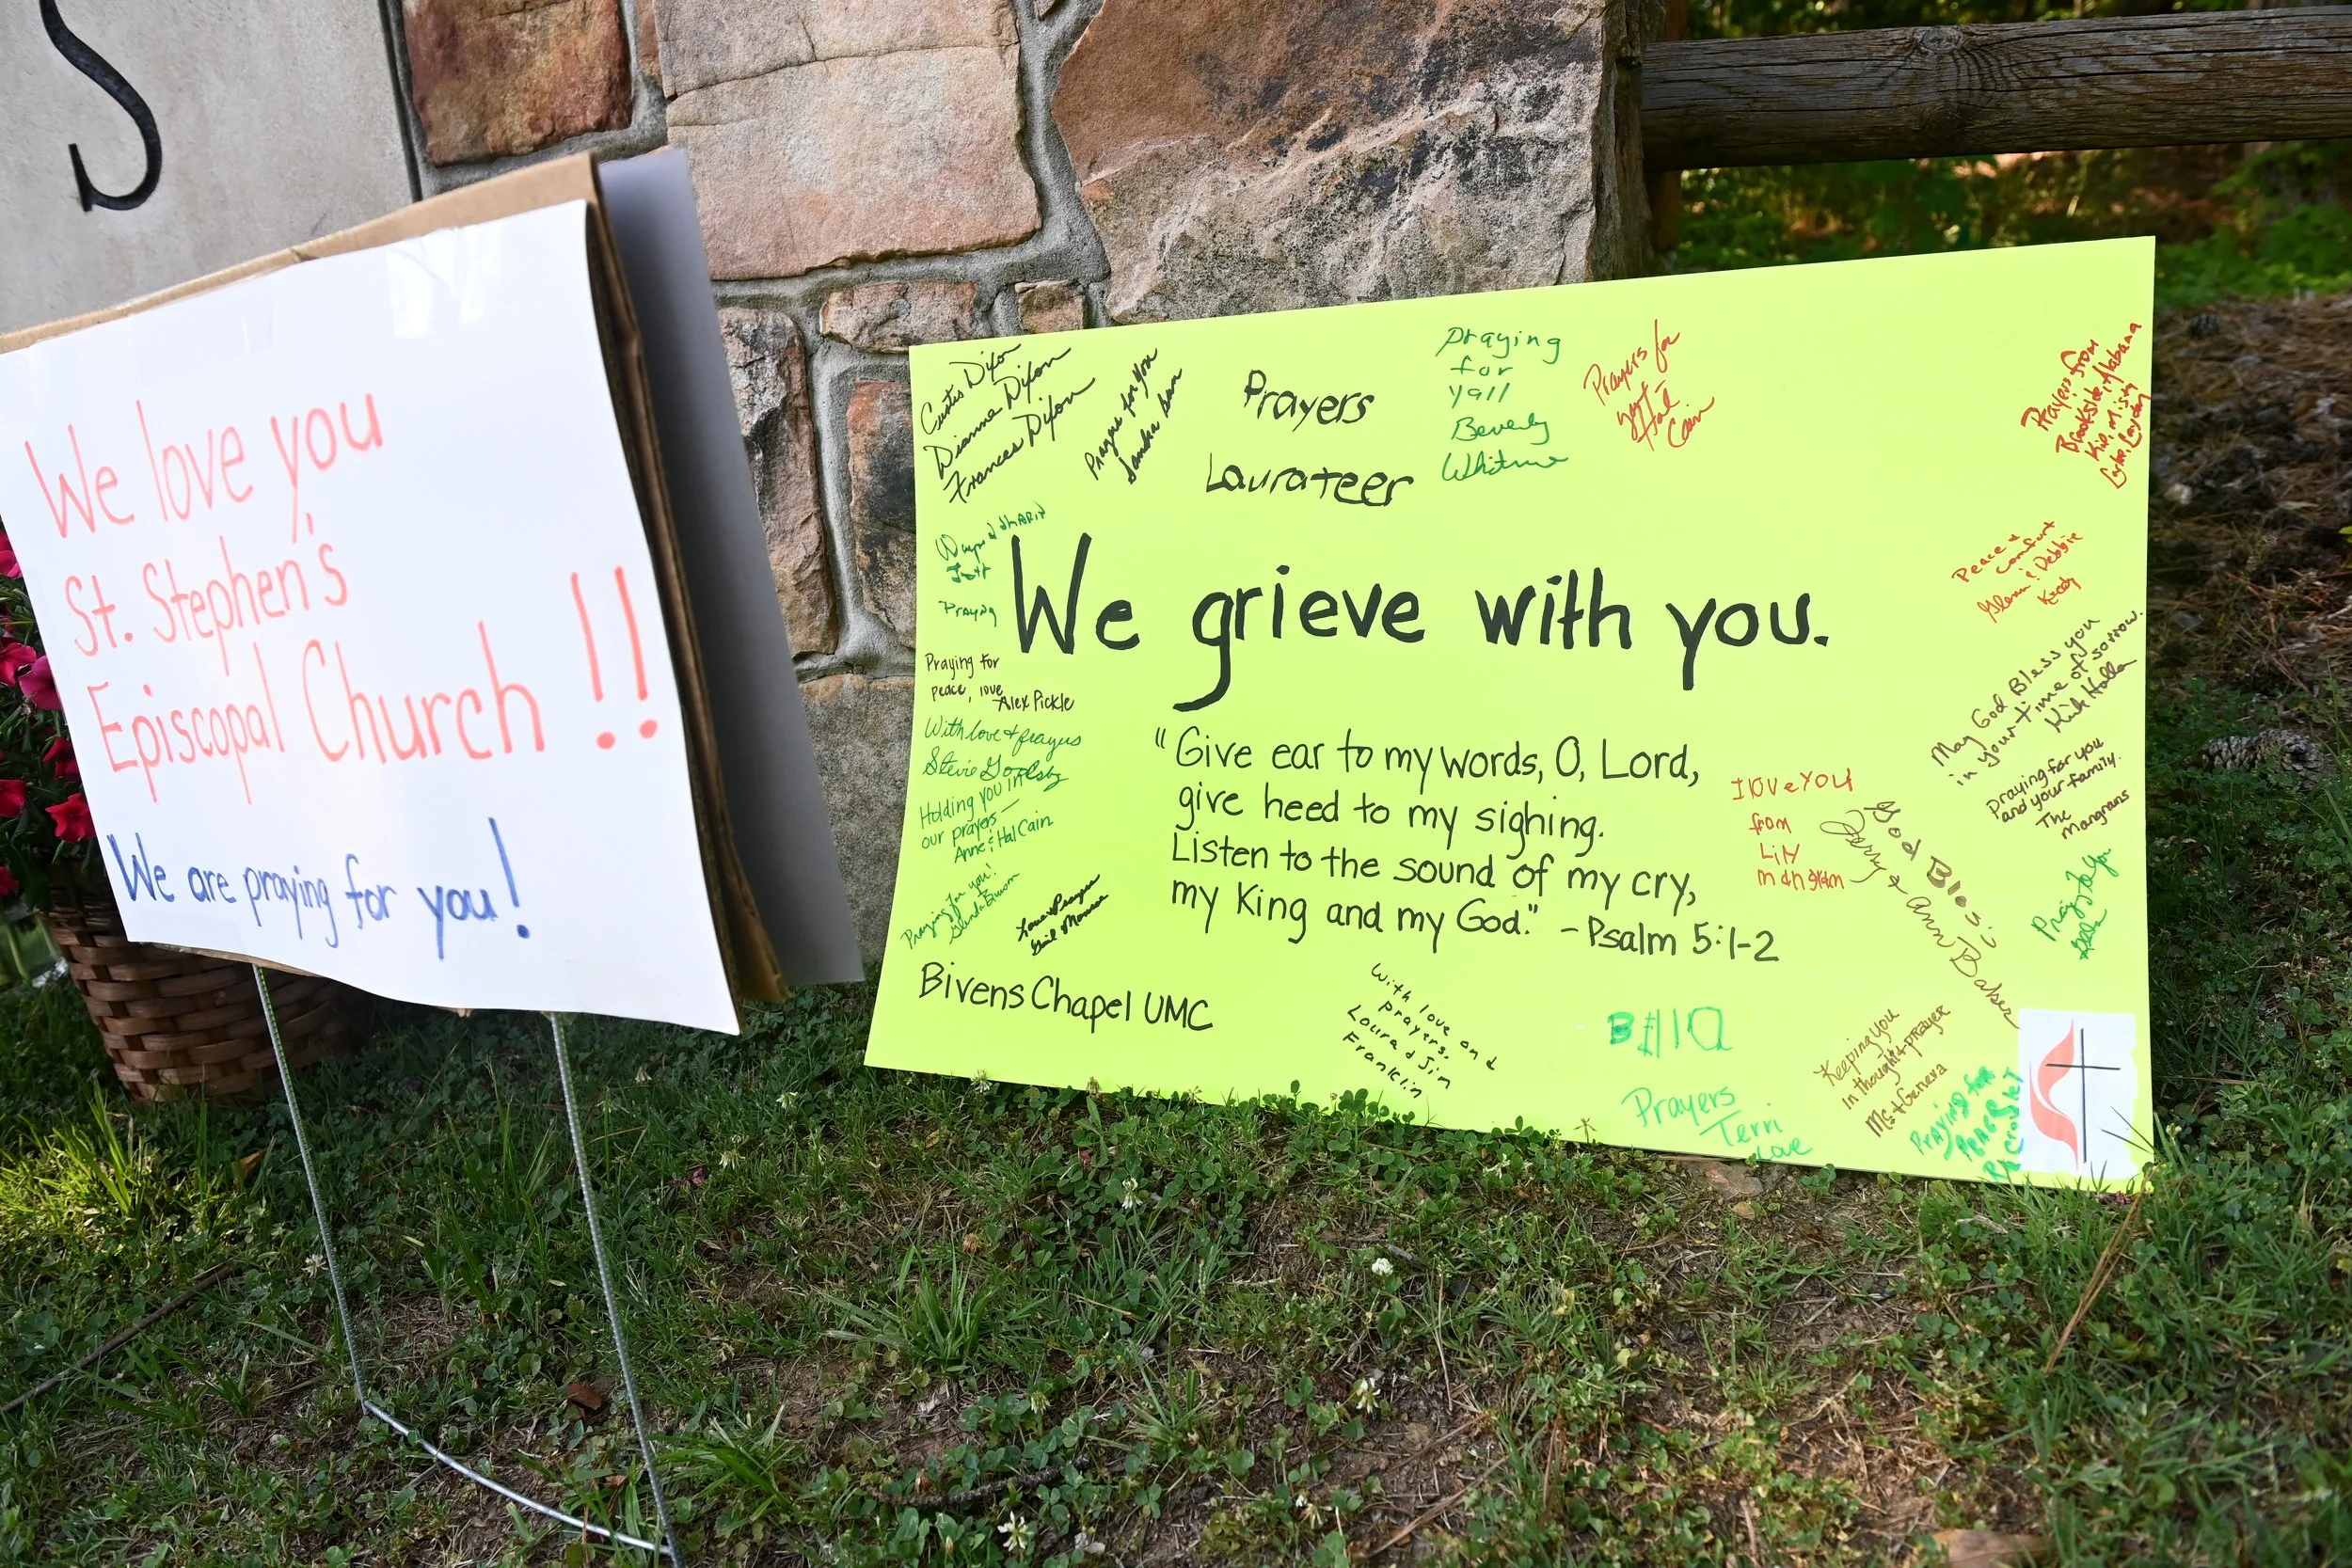 S
We love you
St. Stephen's
Episcopal Church !!
We are praying for you!
Curtis Dixon
Dianne Dixon
Frances Dixon
for you
Prayers
Laura Teer
praying
for
yall
Beverly
Prayers for
you
Hal
Cain
Prayers from
Brookside, Alabama
Praying
We grieve with you.
Praying for
peace, love
Alex Pickle
With love & prayers
Stevie
Holding you in
our prayers —
Anne & Hal Cain
Praying for you!
Glenda
"Give ear to my words, O, Lord,
give heed to my sighing.
Listen to the sound of my cry,
my King and my God." - Psalm 5:1-2
Bivens Chapel UMC
With love and
prayers.
Laura & Jim
Franklin
Peace &
comfort
Glenn & Debbie
May God Bless you
in your time of sorrow.
praying for you
and your family.
The
Mangrans
I love YOU
from
Lily
God Bless
Jerry & Ann Baker
Prayers
Terri
Love
Keeping you
in thought & prayer
& Geneva
Praying for